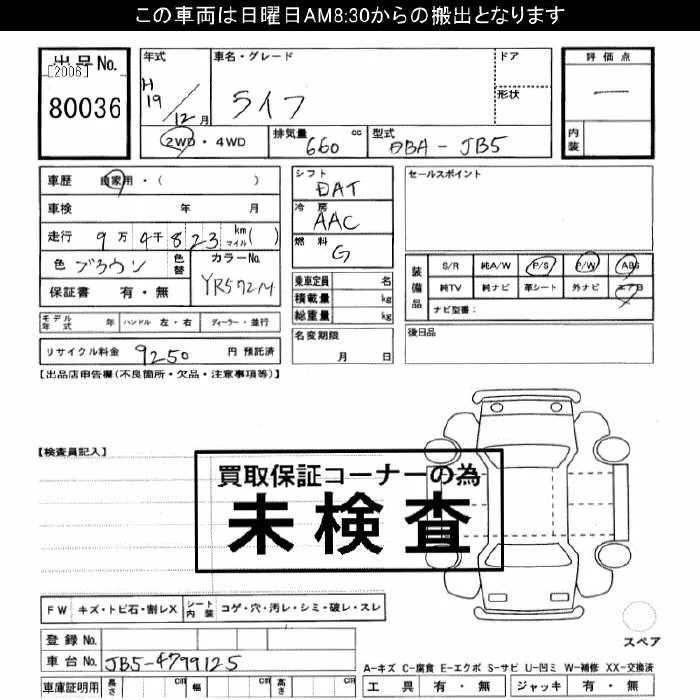 この車両は日曜日AM8:30からの搬出となります
出品No.
[2006]
80036
年式
H19/12月
車名・グレード
ライフ
ドア
形状
評価点
ー
内装
2WD・4WD
排気量 660 cc
型式 DBA-JB5
車歴 自家用・( )
車検 年 月
走行 9万4千823 km マイル( )
色 ブラウン 色替
カラーNo. YR572M
保証書 有・無
モデル年式 年 ハンドル 左・右 ディーラー・並行
リサイクル料金 9250 円 預託済
シフト DAT
冷房 AAC
燃料 G
乗車定員 名
積載量 kg
総重量 kg
名変期限
月 日
セールスポイント
装備品
S/R 純A/W P/S P/W ABS
純TV 純ナビ 革シート 外ナビ エアB
ナビ型番:
後日品
【出品店申告欄(不良箇所・欠品・注意事項等)】
【検査員記入】
買取保証コーナーの為
未検査
FW キズ・トビ石・割レX シート内装 コゲ・穴・汚レ・シミ・破レ・スレ
登録No.
車台No. JB5-4799125
車庫証明用 長さ cm 幅 cm 高さ cm
スペア
A-キズ C-腐食 E-エクボ S-サビ U-凹ミ W-補修 XX-交換済
工具 有・無 ジャッキ 有・無